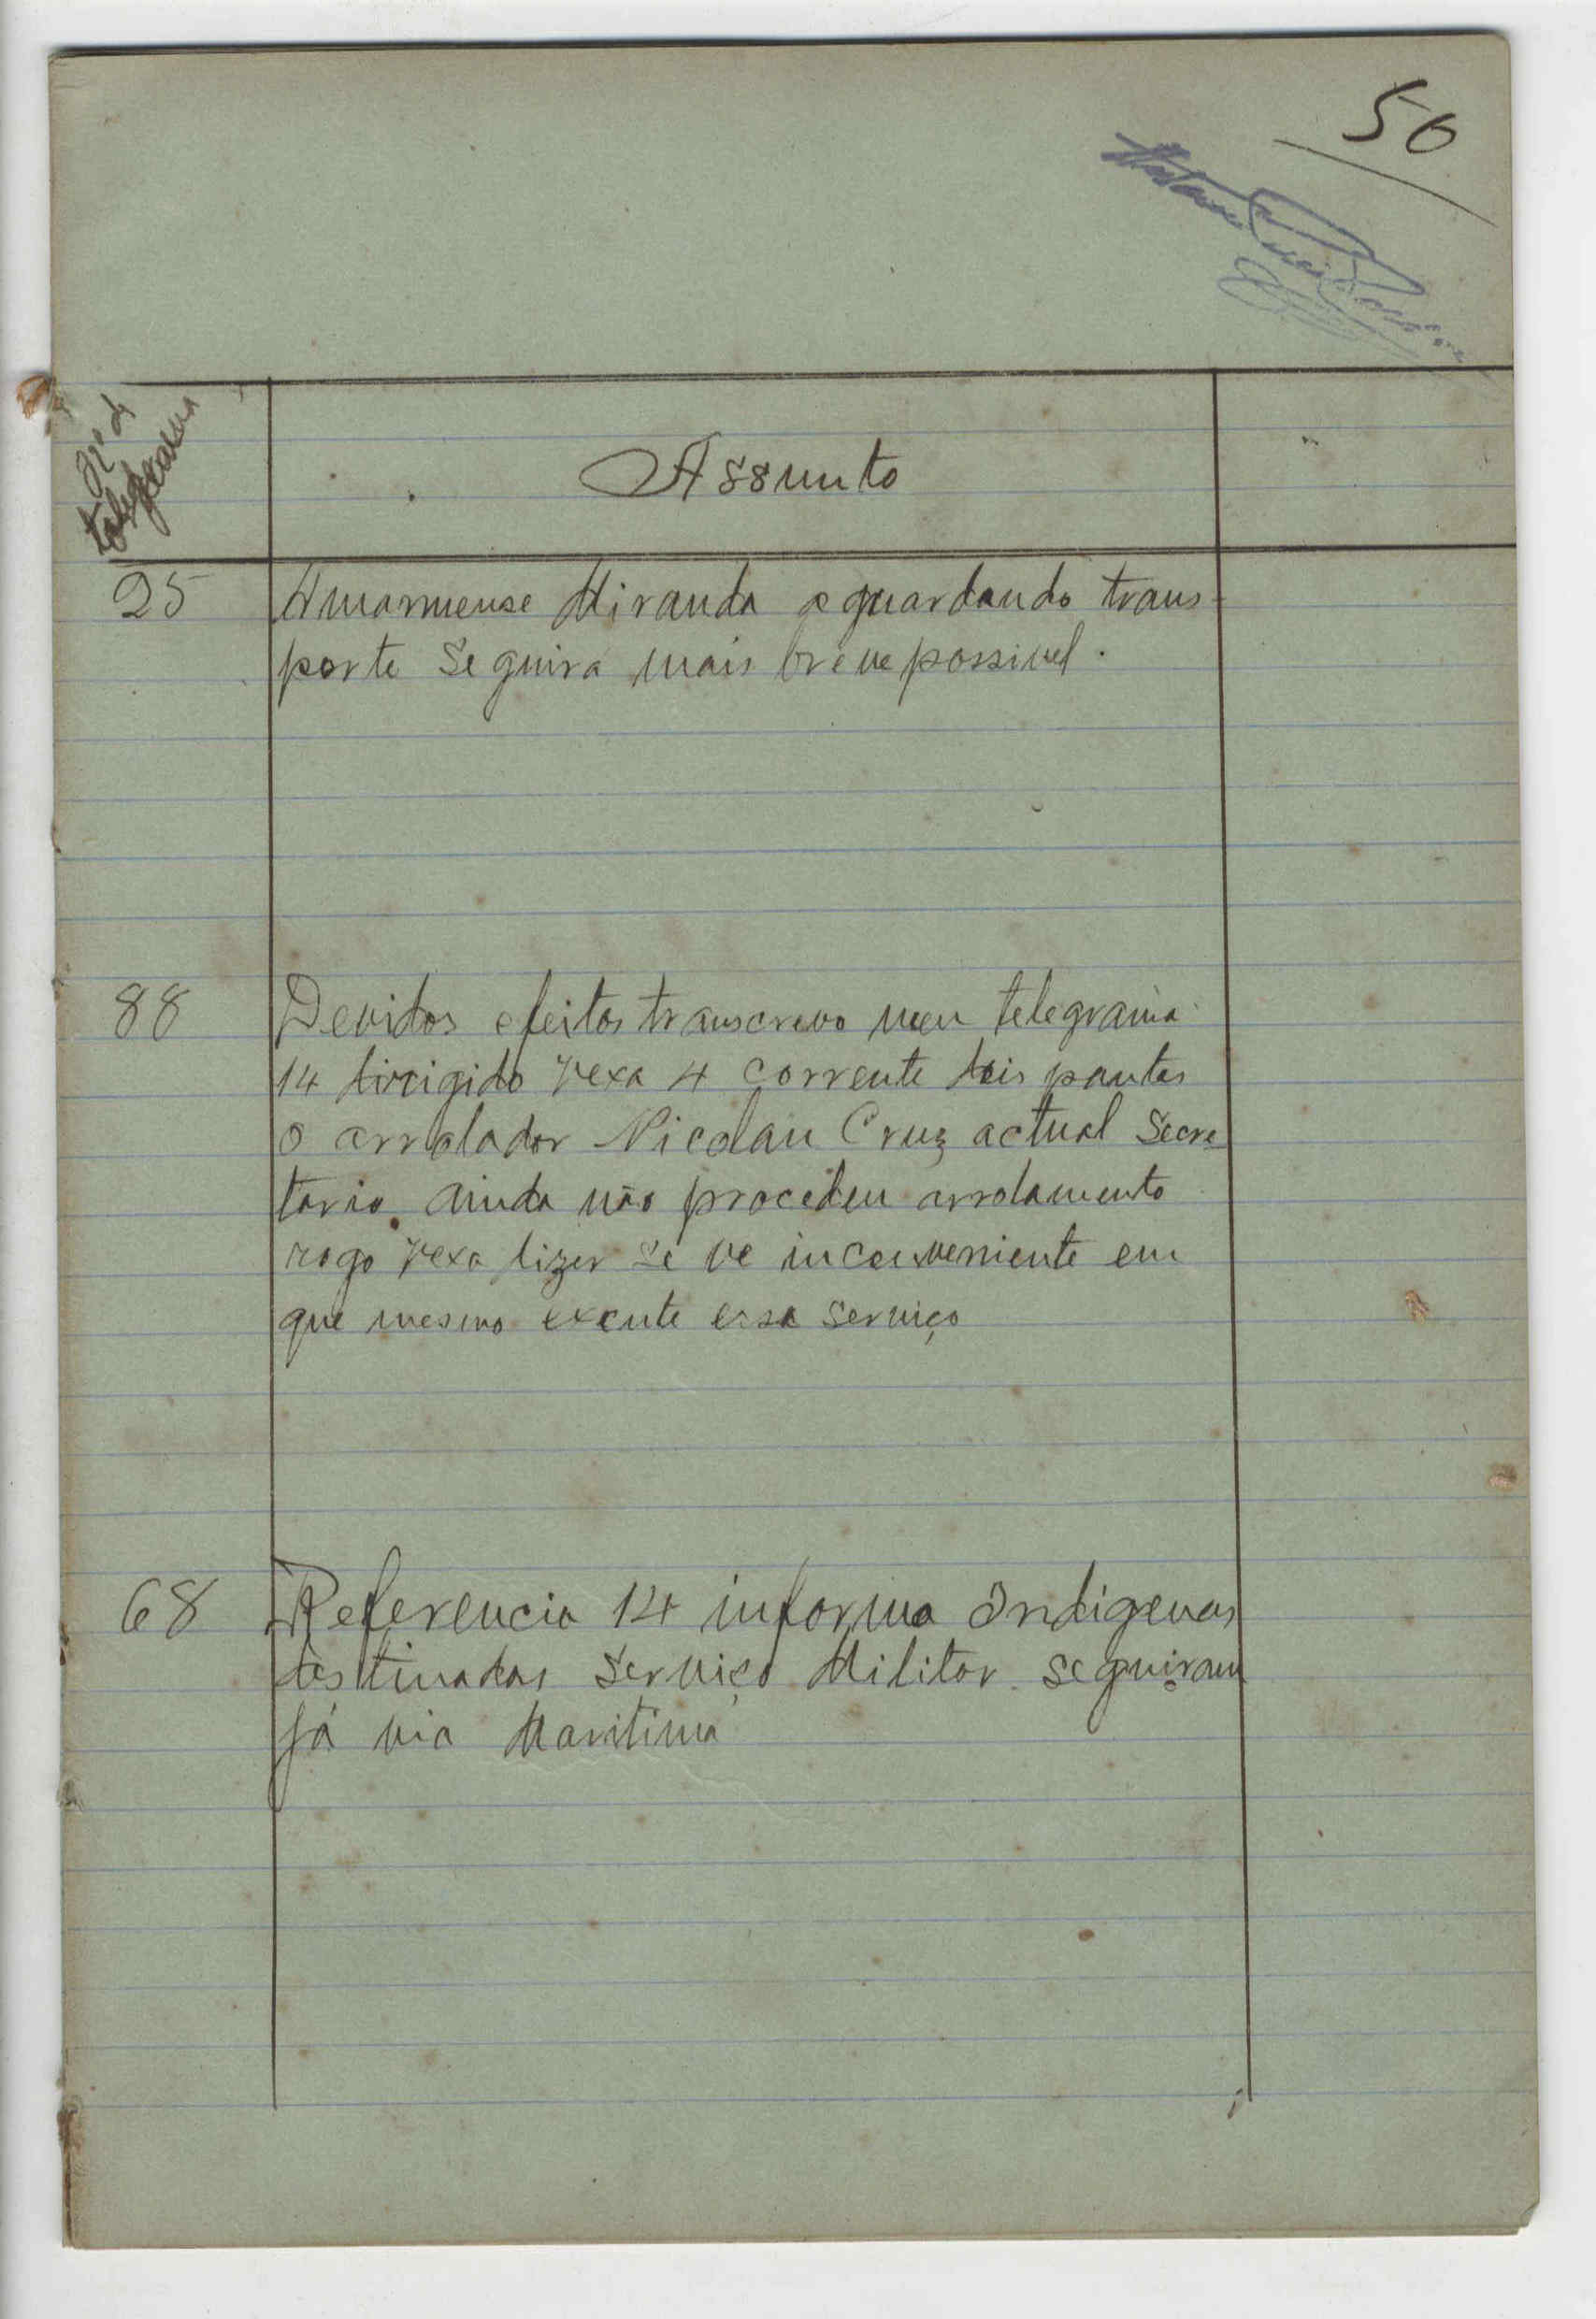 50
Nº de
telegrama
Assunto
25
Amanuense Miranda aguardando trans-
porte seguirá mais breve possivel.
88
Devidos efeitos transcrevo meu telegrama
14 dirigido Vexa 4 corrente dois pontos
O arrolador Nicolau Cruz actual Secre-
tario ainda não procedeu arrolamento
rogo Vexa dizer se ve inconveniente em
que mesmo excute esse serviço
68
Referencia 14 informo Indigenas
destinados Serviço Militar seguiram
já via Maritima